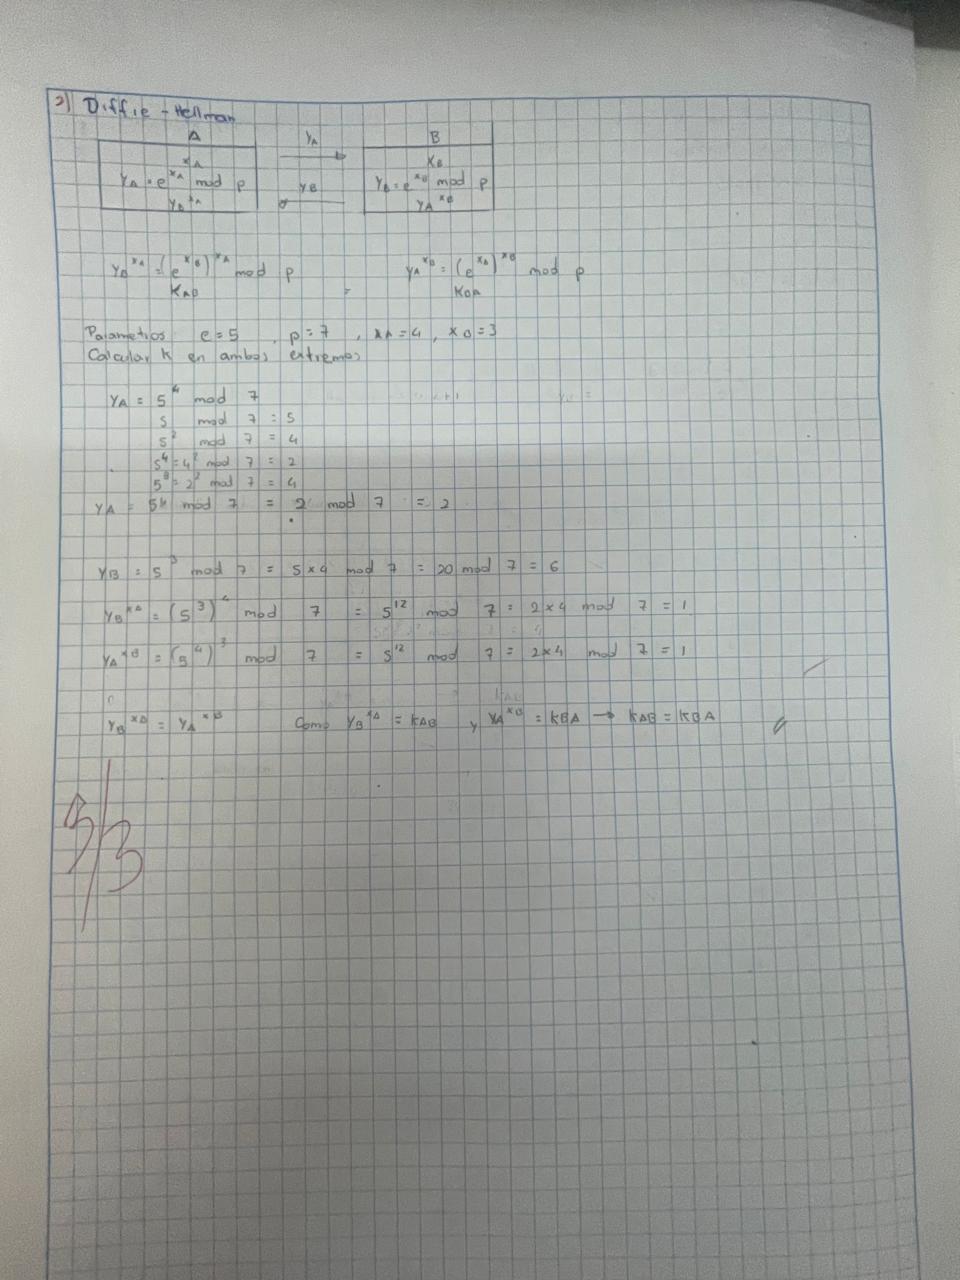 2) Diffie - Hellman
A YA B
XA XB
YA = e^XA mod p YB YB = e^XB mod p
YB^XA YA^XB
YB^XA = (e^XB)^XA mod p YA^XB = (e^XA)^XB mod p
KAB = KBA
Parametros e = 5 , p = 7 , XA = 4 , XB = 3
Calcular K en ambos extremos
YA = 5^4 mod 7
5 mod 7 = 5
5^2 mod 7 = 4
5^4 = 4^2 mod 7 = 2
5^8 = 2^2 mod 7 = 4
YA = 5^4 mod 7 = 2 mod 7 = 2
YB = 5^3 mod 7 = 5 x 4 mod 7 = 20 mod 7 = 6
YB^XA = (5^3)^4 mod 7 = 5^12 mod 7 = 2 x 4 mod 7 = 1
YA^XB = (5^4)^3 mod 7 = 5^12 mod 7 = 2 x 4 mod 7 = 1
YB^XA = YA^XB Como YB^XA = KAB y YA^XB = KBA → KAB = KBA
3/3